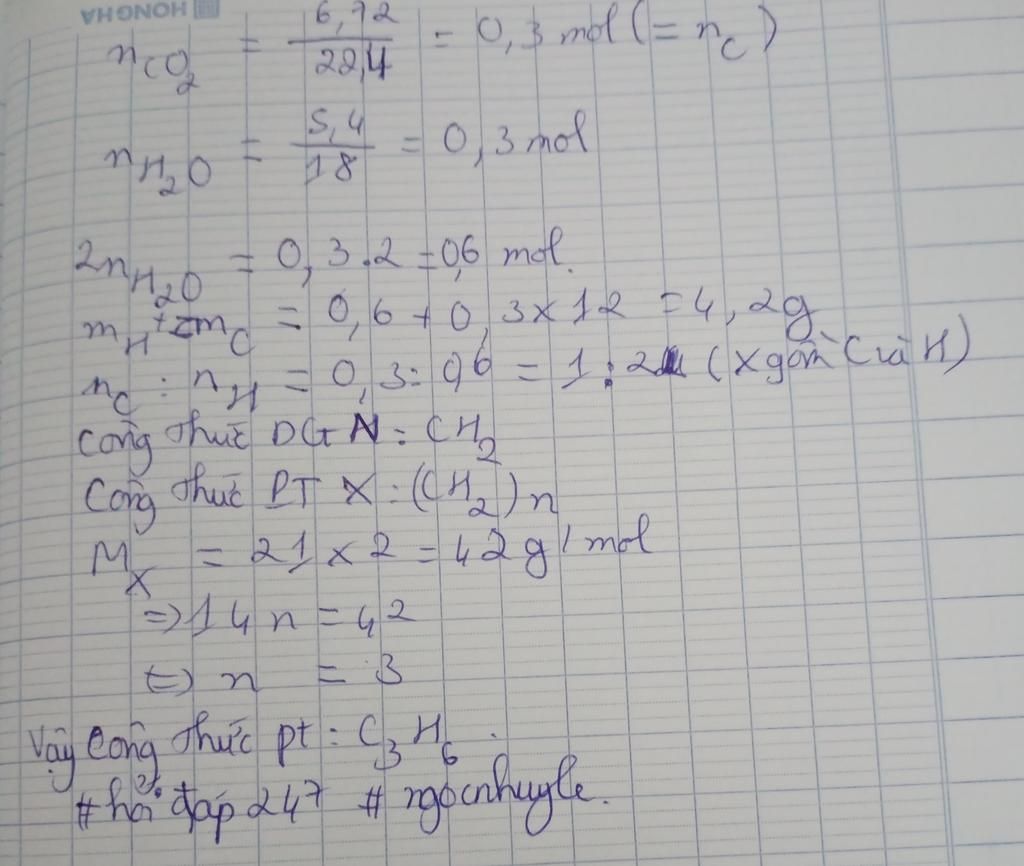 HONGHA
n_CO₂ = 6,72/22,4 = 0,3 mol (= n_C)
n_H₂O = 5,4/18 = 0,3 mol
2n_H₂O = 0,3.2 = 0,6 mol.
m_H + m_C = 0,6 + 0,3x12 = 4,2g
n_C : n_H = 0,3 : 0,6 = 1 : 2 (X gồm C và H)
Công thức DGN : CH₂
Công thức PT X : (CH₂)n
M_X = 21 x 2 = 42 g/mol
=> 14n = 42
<=> n = 3
Vậy công thức pt : C₃H₆.
#hỏi đáp 247 #ngocnhuyle.